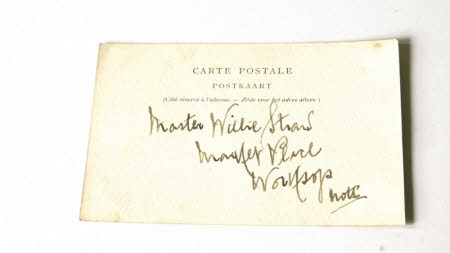 CARTE POSTALE
POSTKAART
(Côté réservé à l'adresse. — Zijde voor het adres alleen)
Master Willie Straw
Market Place
Worksop
Notts